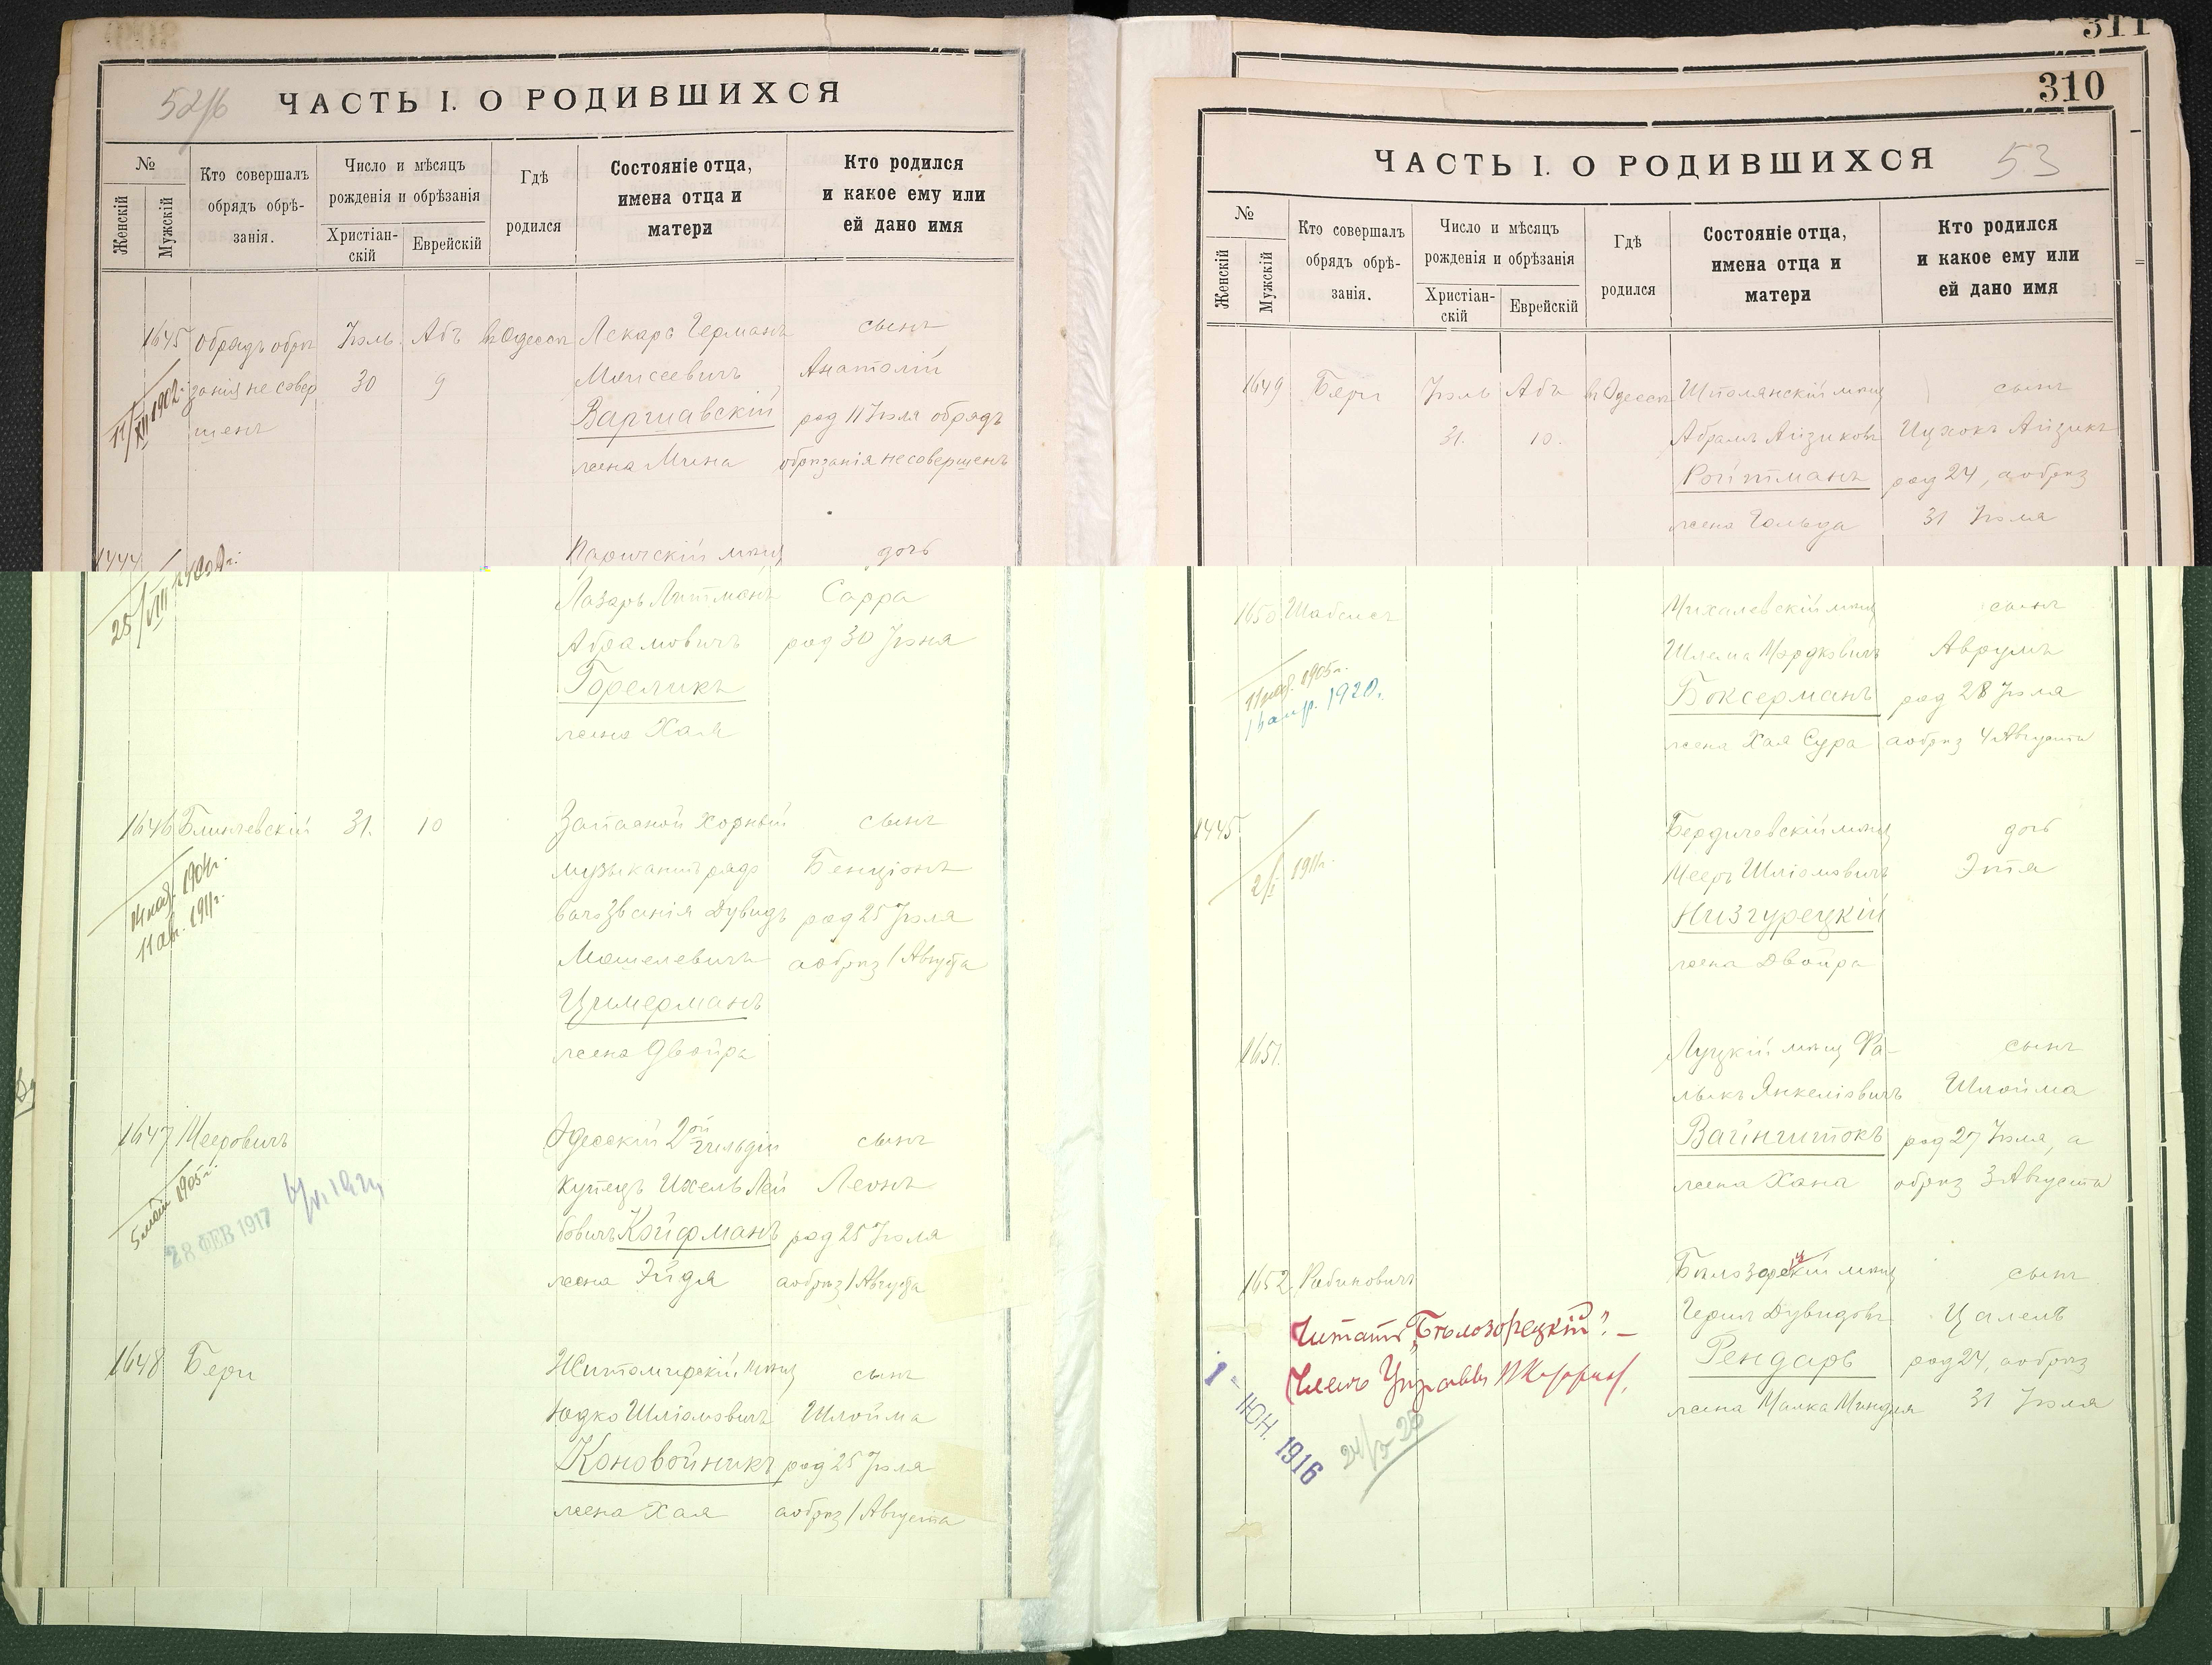 52/б
ЧАСТЬ I. О РОДИВШИХСЯ
№
Женскій
Мужскій
Кто совершалъ
обрядъ обрѣ-
занія.
Число и мѣсяцъ
рожденія и обрѣзанія
Христіан-
скій
Еврейскій
Гдѣ
родился
Состояніе отца,
имена отца и
матери
Кто родился
и какое ему или
ей дано имя
1645 обрядъ обрѣ Іюль Абъ въ Одессѣ Лекарь Германъ сынъ
занія не совер 30 9 Моисеевичъ Анатолій
шенъ Варшавскій род 11 Іюля обрядъ
жена Мина обрѣзанія не совершенъ
11/XII 1902 г.
1444 Паричскій мѣщ дочь
25/VIII 1909 г. Лазарь Литманъ Сарра
Абрамовичъ род 30 Іюня
Гореликъ
жена Хая
1646 Блинчевскій 31. 10 Запасной хорный сынъ
музыкантъ рядо Бенціонъ
14 нояб. 1904 г.
11 ав. 1911 г.
ваго званія Дувидъ род 25 Іюля
Мошелевичъ а обрѣз 1 Августа
Цимерманъ
жена Двойра
1647 Мееровичъ Одесскій 2ой гильдіи сынъ
5 маія 1905 г.
28 ФЕВ 1917
купецъ Ихель Лей Леонъ
бовичъ Койфманъ род 25 Іюля
жена Эйдля а обрѣз 1 Августа
1648 Бери Житомирскій мѣщ сынъ
Юдко Шліомовичъ Шлойма
Коновойникъ род 25 Іюля
жена Хая а обрѣз 1 Августа
311
310
ЧАСТЬ I. О РОДИВШИХСЯ 53
№
Женскій
Мужскій
Кто совершалъ
обрядъ обрѣ-
занія.
Число и мѣсяцъ
рожденія и обрѣзанія
Христіан-
скій
Еврейскій
Гдѣ
родился
Состояніе отца,
имена отца и
матери
Кто родился
и какое ему или
ей дано имя
1649 Бери Іюль Абъ въ Одессѣ Шполянскій мѣщ сынъ
31. 10. Абрамъ Айзиковъ Ицхокъ Айзикъ
Ройтманъ род 24, а обрѣз
жена Гольда 31 Іюля
1650 Шабсисъ Михалевскій мѣщ сынъ
Шлема Мордковичъ Аврумъ
11 нояб. 1905 г.
1920.
Боксерманъ род 28 Іюля
жена Хая Сура а обрѣз 4 Августа
1445 Бердичевскій мѣщ дочь
2/I 1911 г. Мееръ Шліомовичъ Этя
Низгурецкій
жена Двойра
1651. Луцкій мѣщ Фа- сынъ
лыкъ Янкеліовичъ Шлойма
Вайнштокъ род 27 Іюля, а
жена Хана обрѣз 3 Августа
1652 Рабиновичъ Бѣлозорскій мѣщ сынъ
Читать „Бѣлозорецкій“. –
Членъ Управы
1 – ІЮН. 1916
Гершъ Дувидовъ Цалель
Рендаръ род 24, а обрѣз
жена Малка Миндля 31 Іюля